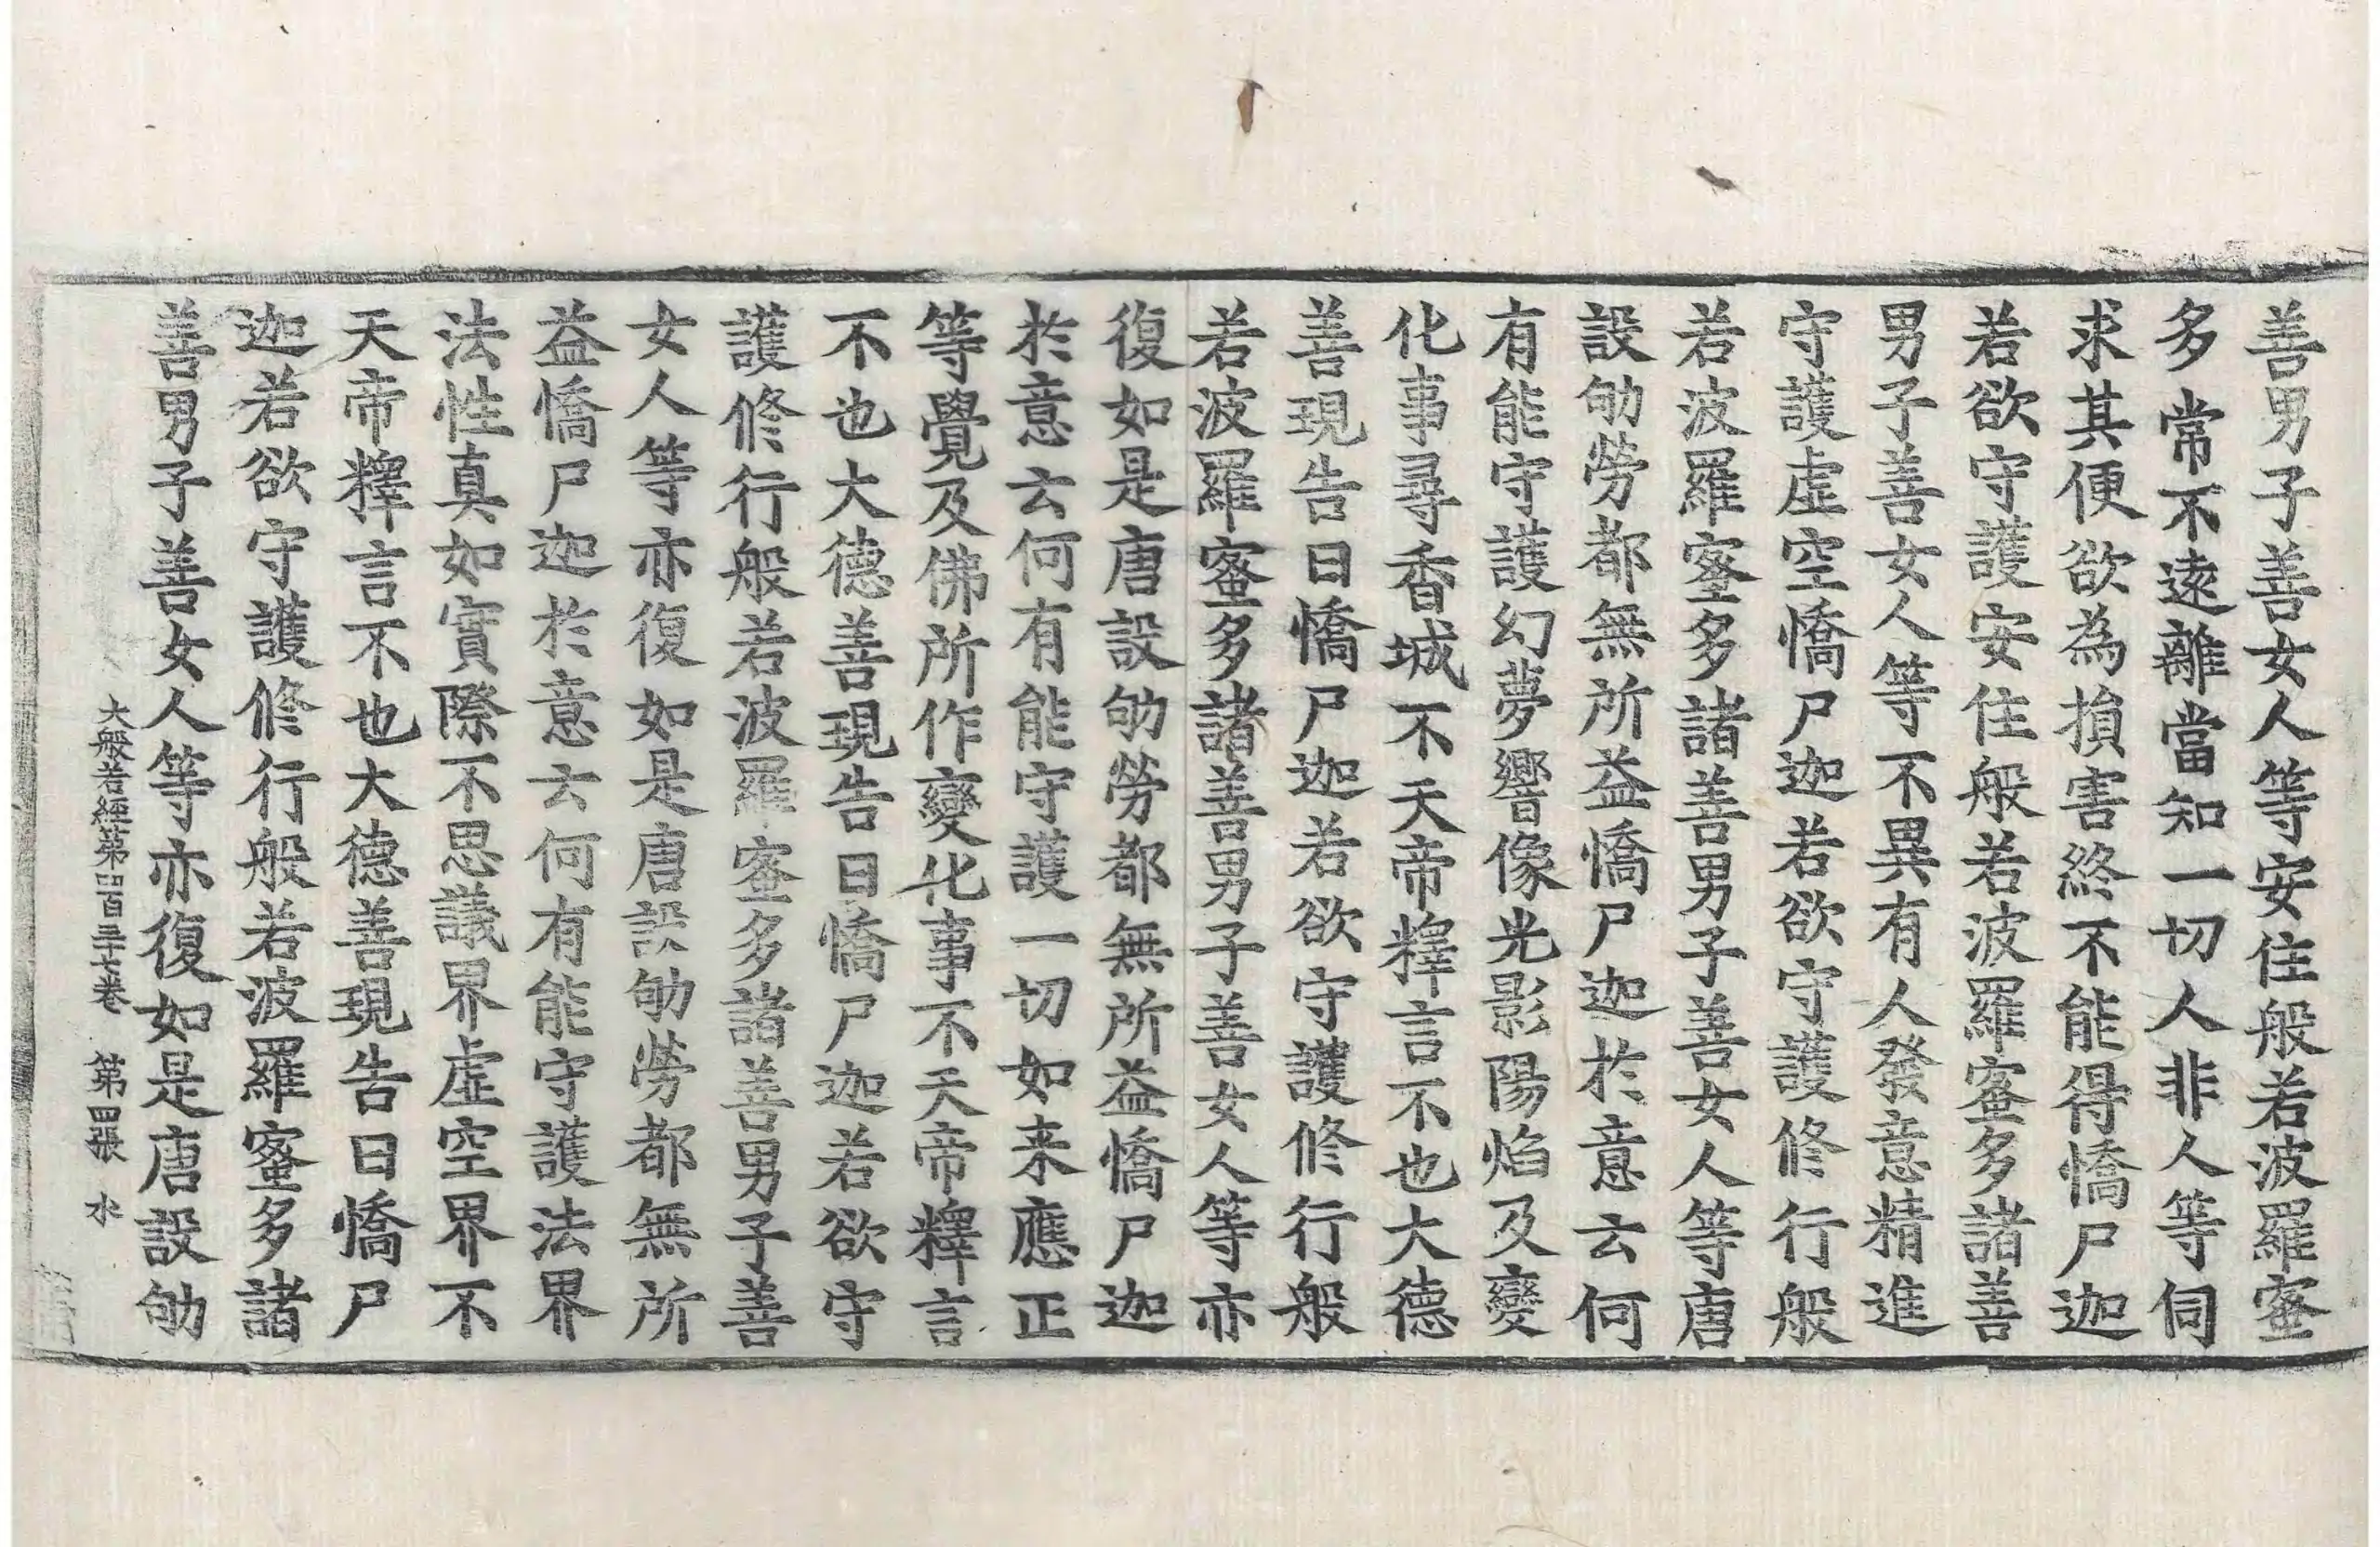 善男子善女人等安住般若波羅蜜
多常不遠離當知一切人非人等伺
求其便欲為損害終不能得憍尸迦
若欲守護安住般若波羅蜜多諸善
男子善女人等不異有人發意精進
守護虛空憍尸迦若欲守護修行般
若波羅蜜多諸善男子善女人等唐
設劬勞都無所益憍尸迦於意云何
有能守護幻夢響像光影陽焰及變
化事尋香城不天帝釋言不也大德
善現告曰憍尸迦若欲守護修行般
若波羅蜜多諸善男子善女人等亦
復如是唐設劬勞都無所益憍尸迦
於意云何有能守護一切如来應正
等覺及佛所作變化事不天帝釋言
不也大德善現告曰憍尸迦若欲守
護修行般若波羅蜜多諸善男子善
女人等亦復如是唐設劬勞都無所
益憍尸迦於意云何有能守護法界
法性真如實際不思議界虛空界不
天帝釋言不也大德善現告曰憍尸
迦若欲守護修行般若波羅蜜多諸
善男子善女人等亦復如是唐設劬
大般若經第四百三十七卷 第四張 水